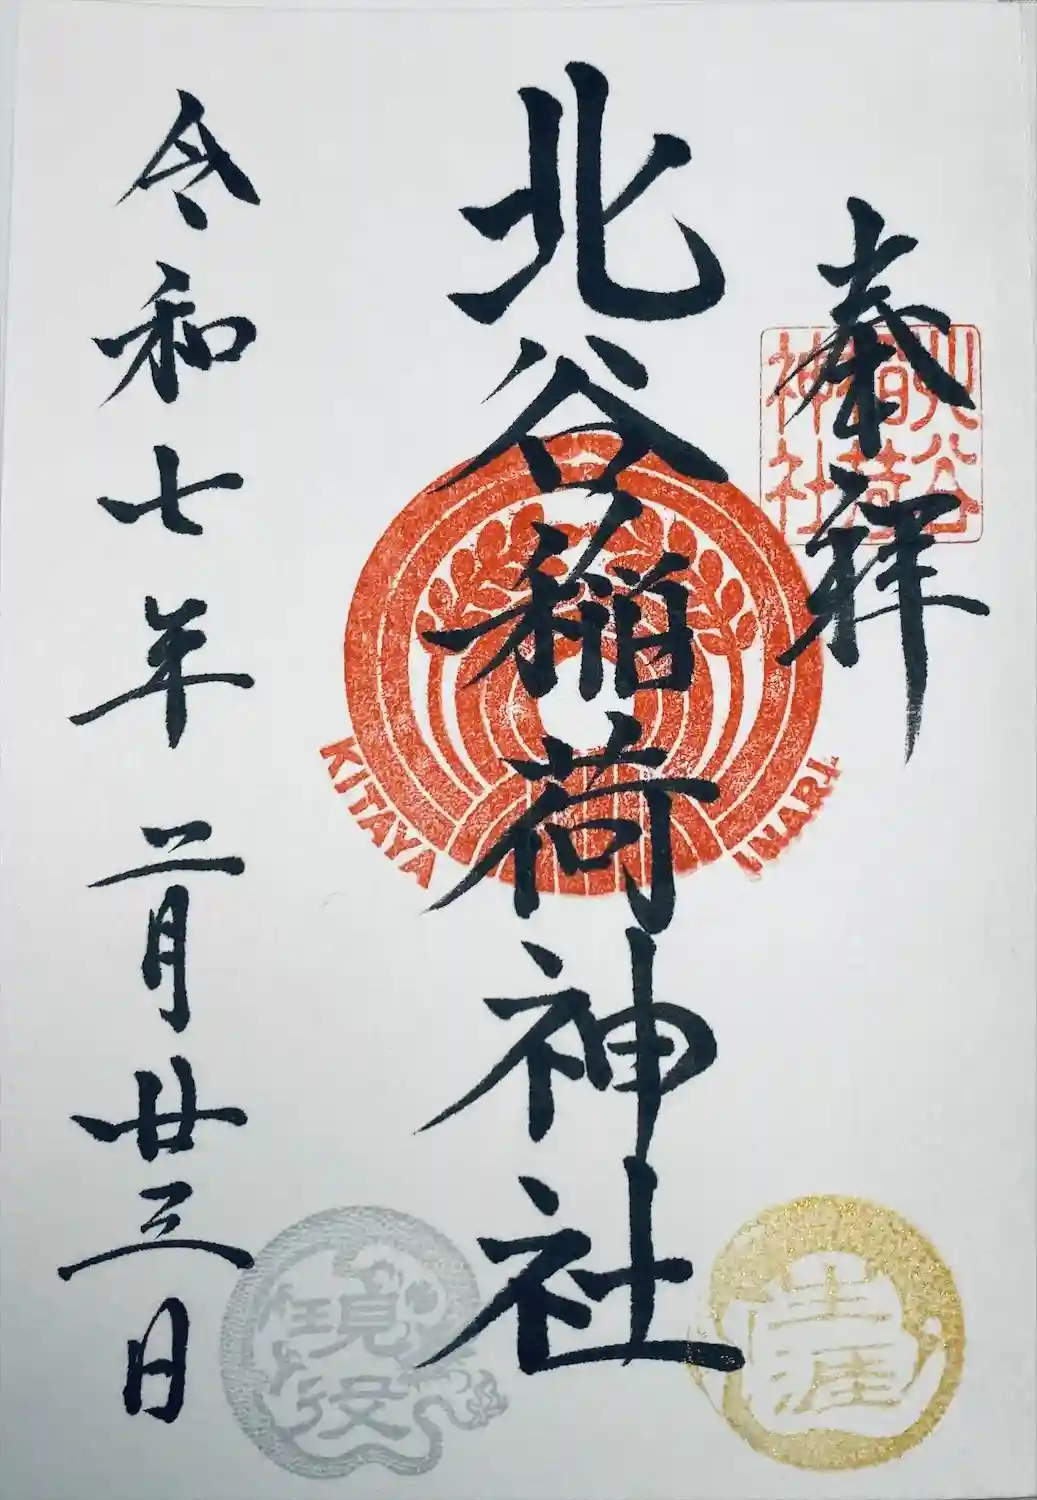 奉拝
北谷
稲荷
神社
北谷稲荷神社
KITAYA INARI
令和七年二月廿三日
生涯
現役